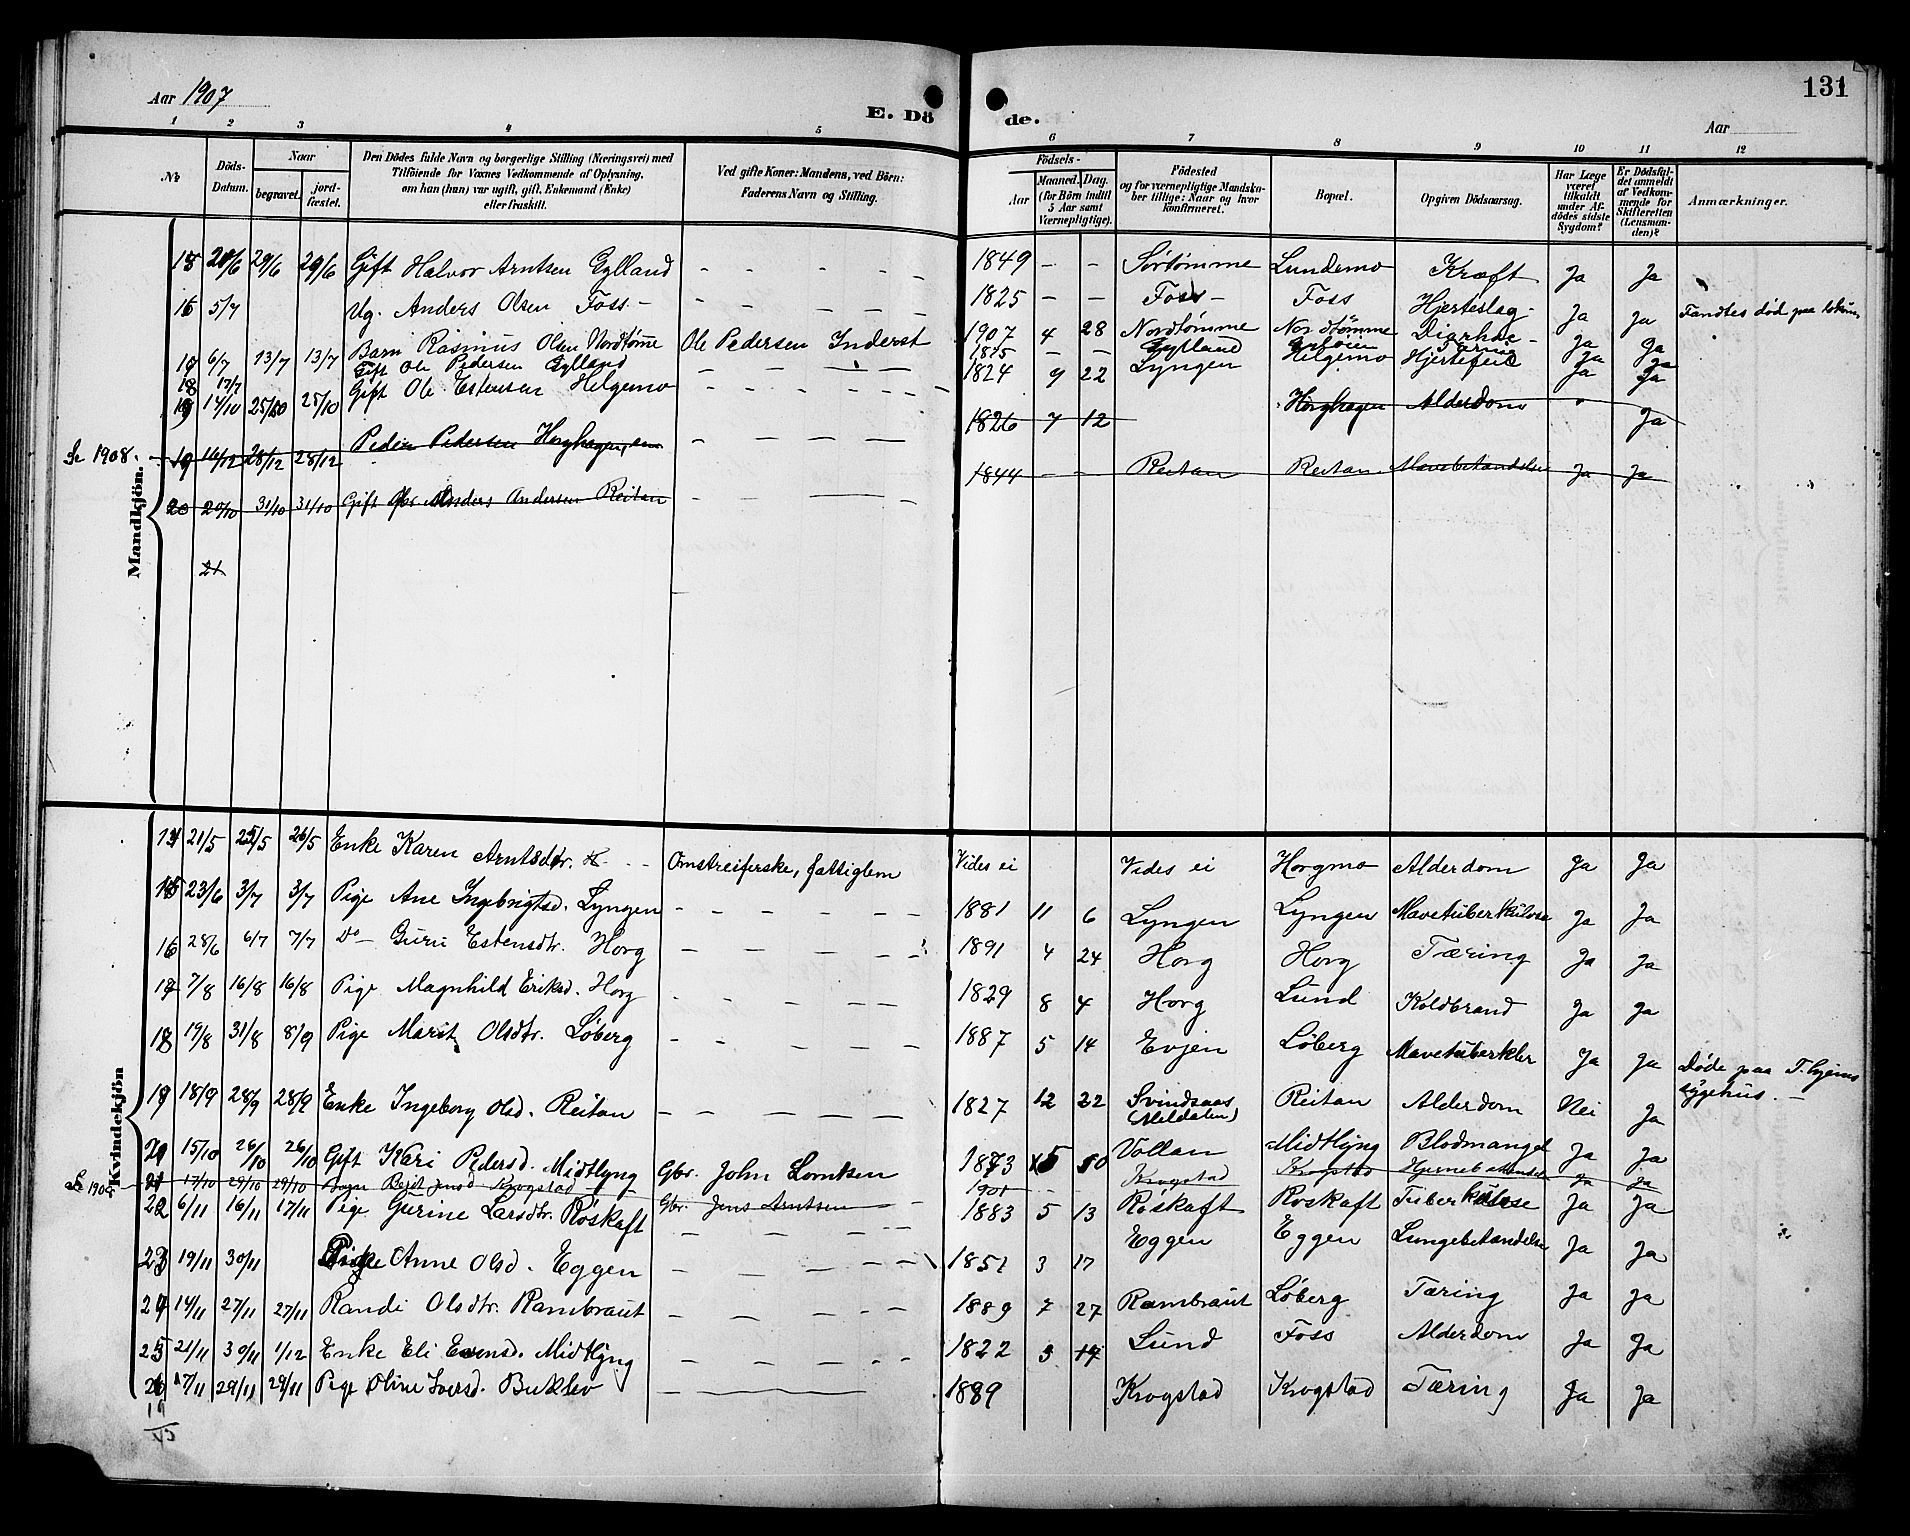 Aar 1907
E. Dö de.
131
Aar
1 2 3 4 5 6 7 8 9 10 11 12
No
Döds-Datum.
Naar
begravet.
jord-fæstet.
Den Dödes fulde Navn og borgerlige Stilling (Næringsvei) med Tilföiende for Voxnes Vedkommende af Oplysning, om han (hun) var ugift, gift, Enkemand (Enke) eller fraskilt.
Ved gifte Koner: Mandens, ved Börn: Faderens Navn og Stilling.
Födsels-
Aar
Maaned. Dag.
(for Börn indtil 5 Aar samt Værnepligtige).
Födested og for værnepligtige Mandskaber tillige: Naar og hvor konfirmeret.
Bopæl.
Opgiven Dödsaarsag.
Har Læge været tilkaldt under Afdödes sidste Sygdom?
Er Dödsfaldet anmeldt af Vedkommende for Skifteretten (Lensmanden)?
Anmærkninger.
Mandkjön.
15 29/6 29/6 Gift Halvor Arntsen Gylland - - - - 1849 - - Sørtømme Lundemo Kræft Ja Ja
16 5/7 Ug. Anders Olsen Foss - - - - - 1825 - - Foss - Foss Hjerteslag - Ja Ja Fandtes død paa
17 6/7 13/7 13/7 Barn Rasmus Olsen Nordtømme Ole Pedersen Inderst 1907 4 28 Nordtømme Nordtømme Diarhoe - Ja Ja
18 17/7 Gift Ole Pedersen Gylland - - - - - Gylland Ja Ja
19 14/10 25/10 25/10 Gift Ole Estensen Helgemo - - - - 1824 9 22 Lyngen Helgemo Hjertefeil Ja Ja
Se 1908. 19 16/12 28/12 28/12 Peder Pedersen Horghagen - - - - 1826 7 12 Horghagen Alderdom " Ja
20 20/10 31/10 31/10 Gift Gbr. Anders Andersen Reitan - - - - 1844 - - Reitan Reitan Mavebetændelse Ja Ja
21
Kvindekjön
14 21/5 25/5 26/5 Enke Karen Arntsdtr. - - Omstreiferske, fattiglem Vides ei Vides ei Horgmo Alderdom Ja Ja
15 23/6 3/7 3/7 Pige Ane Ingebrigtsd. Lyngen - - - - - 1881 11 6 Lyngen Lyngen Mavetuberkulose Ja Ja
16 28/6 6/7 7/7 Do - Guru Estensdtr. Horg - - - - - 1891 4 24 Horg Horg Tæring Ja Ja
17 7/8 16/8 16/8 Pige Magnhild Eriksd. Horg - - - - - 1829 8 4 Horg Lund Koldbrand Ja Ja
18 19/8 31/8 8/9 Pige Marit Olsdtr. Løberg - - - - - 1887 5 14 Evjen Løberg Mavetuberkler Ja Ja Døde paa T.hjems sygehus. -
19 18/9 28/9 28/9 Enke Ingeborg Olsd. Reitan - - - - - 1827 12 22 Svindsaas (Meldalen) Reitan Alderdom Nei Ja
20 15/10 26/10 26/10 Gift Kari Pedersd. Midtlyng Gbr. John Lorntsen 1873 5 Vollan Midtlyng Blodmangel Ja Ja
21 17/10 29/10 29/10 Barn Berit Jensd Krogstad Gbr. Jens Arntsen 1901 - - Krogstad Krogstad Ja Ja
22 6/11 16/11 17/11 Pige Gurine Larsdtr. Røskaft - - - - 1883 5 13 Røskaft Røskaft Tuberkulose Ja Ja
23 19/11 30/11 Pige Anne Olsd. Eggen - - - - - 1851 3 17 Eggen Eggen Lungebetændelse Ja Ja
24 14/11 27/11 27/11 Randi Olsdtr. Rambraut - - - - - 1889 7 27 Rambraut Løberg Tæring Ja Ja
25 21/11 30/11 1/12 Enke Eli Evensd. Midtlyng - - - - - 1822 3 Lund Foss Alderdom Ja Ja
26 17/11 29/11 29/11 Pige Oline Iversd. Buklev - - - 1889 Krogstad Krogstad Tæring Ja Ja